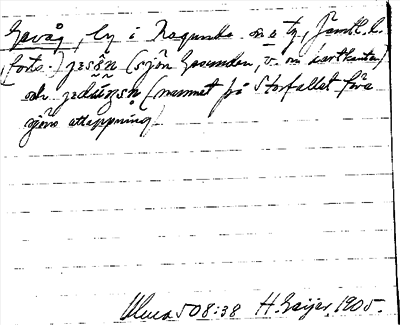 Gevåg, by i Ragunda sn o tg, Jämtl. l.
(forts.) gesån (sjön Gesunden, v. om kartkanten)
och gedüngsn (namnet på Storfallet före
sjöns avtappning)
Ulma 508:38 H. Geijer, 1905.